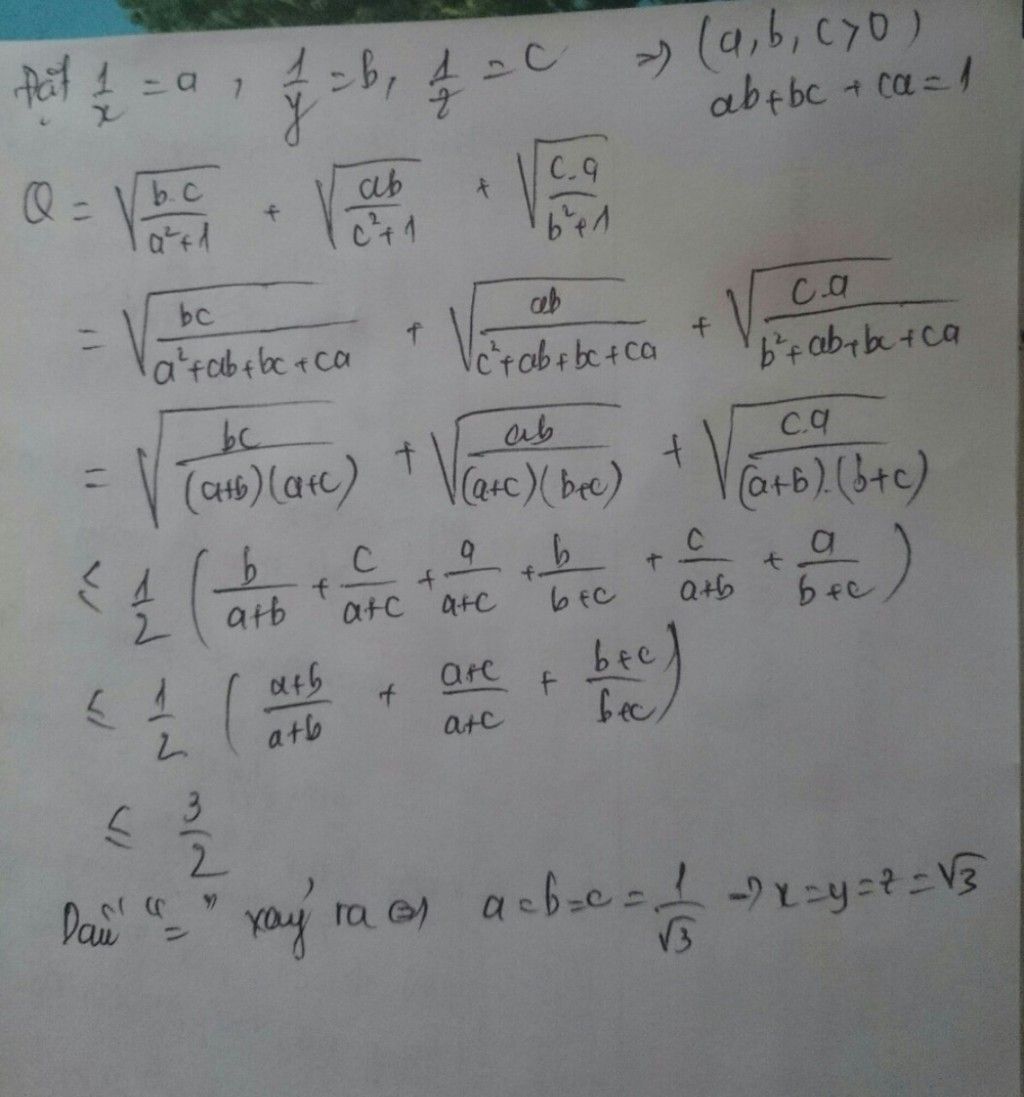 Đặt 1/x = a , 1/y = b, 1/z = c => (a, b, c > 0)
ab+bc + ca = 1
Q = √(b.c/(a²+1)) + √(ab/(c²+1)) + √(c.a/(b²+1))
= √(bc/(a²+ab+bc+ca)) + √(ab/(c²+ab+bc+ca)) + √(c.a/(b²+ab+bc+ca))
= √(bc/((a+b)(a+c))) + √(ab/((a+c)(b+c))) + √(c.a/((a+b).(b+c)))
≤ 1/2 (b/(a+b) + c/(a+c) + a/(a+c) + b/(b+c) + c/(a+b) + a/(b+c))
≤ 1/2 ((a+b)/(a+b) + (a+c)/(a+c) + (b+c)/(b+c))
≤ 3/2
Dấu "=" xảy ra <=> a=b=c = 1/√3 -> x=y=z=√3